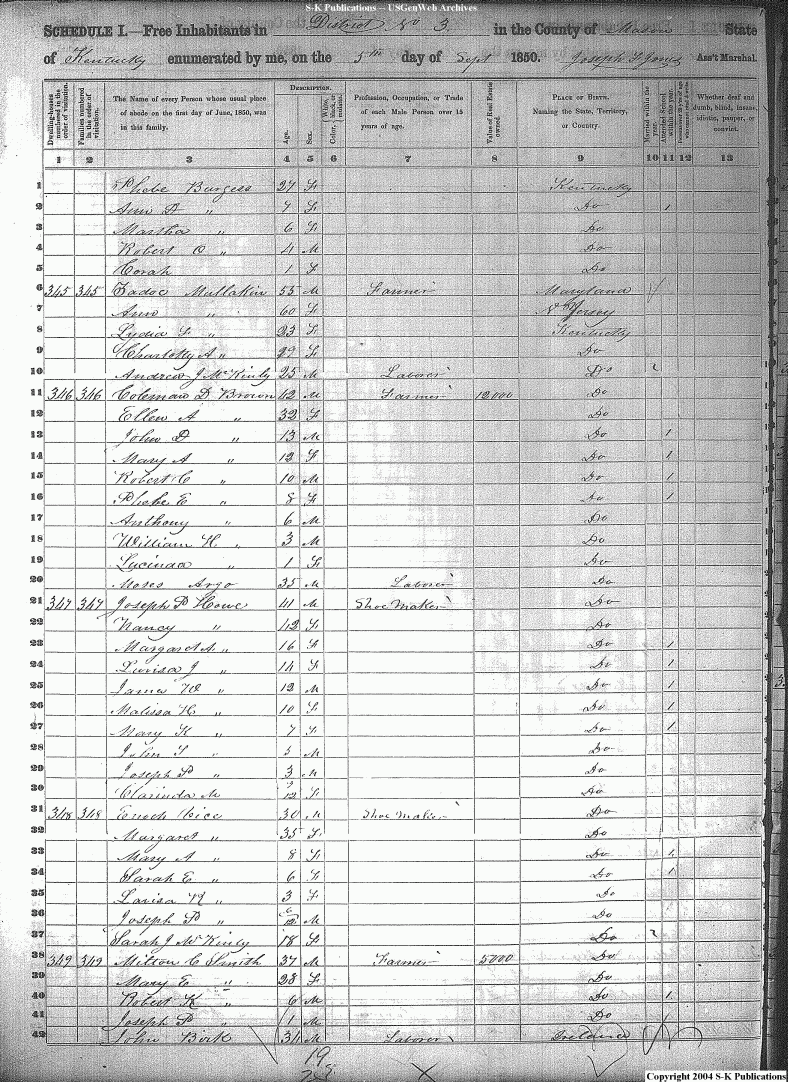 S-K Publications -- USGenWeb Archives
SCHEDULE I.—Free Inhabitants in District No 3. in the County of Mason State
of Kentucky enumerated by me, on the 5th day of Sept 1850. Joseph F Jones Ass't Marshal.
Dwelling-houses numbered in the order of visitation. Families numbered in the order of visitation. The Name of every Person whose usual place of abode on the first day of June, 1850, was in this family. DESCRIPTION. Age. Sex. Color, Profession, Occupation, or Trade of each Male Person over 15 years of age. Value of Real Estate owned. PLACE OF BIRTH. Naming the State, Territory, or Country. Married within the year. Attended School within the year. Whether deaf and dumb, blind, insane, idiotic, pauper, or convict.
1 2 3 4 5 6 7 8 9 10 11 12 13
1 Phebe Burgess 27 F Kentucky
2 Ann D " 7 F Do 1
3 Martha " 6 F Do
4 Robert O " 4 M Do
5 Corah 1 F Do
6 345 345 Zadoc Mullakin 55 M Farmer Maryland
7 Ann " 60 F N Jersey
8 Lydia F " 23 F Kentucky
9 Charlotty A " 29 F Do
10 Andrew J McKinly 25 M Laborer Do
11 346 346 Coleman D Brown 42 M Farmer 12000 Do
12 Ellen A " 32 F Do
13 John D " 13 M Do 1
14 Mary A " 12 F Do 1
15 Robert C " 10 M Do 1
16 Phebe E " 8 F Do 1
17 Anthony " 6 M Do
18 William H " 3 M Do
19 Lucinda " 1 F Do
20 Moses Argo 35 M Laborer Do
21 347 347 Joseph P Howe 41 M Shoe Maker Do
22 Nancy " 42 F Do
23 Margaret A " 16 F Do 1
24 Luvisa J " 14 F Do 1
25 James W " 12 M Do 1
26 Malissa H " 10 F Do 1
27 Mary K " 7 F Do 1
28 John T " 5 M Do
29 Joseph P " 3 M Do
30 Clarinda M 9/12 F Do
31 348 348 Enoch Rice 30 M Shoe Maker Do
32 Margaret " 35 F Do
33 Mary A " 8 F Do 1
34 Sarah E " 6 F Do 1
35 Lavisa N " 3 F Do
36 Joseph P " 6/12 M Do
37 Sarah J McKinly 18 F Do
38 349 349 Milton C Smith 37 M Farmer 5000 Do
39 Mary E " 28 F Do
40 Robert K " 6 M Do 1
41 Joseph P " 1 M Do
42 John Birk 34 M Laborer Ireland
19
Copyright 2004 S-K Publications